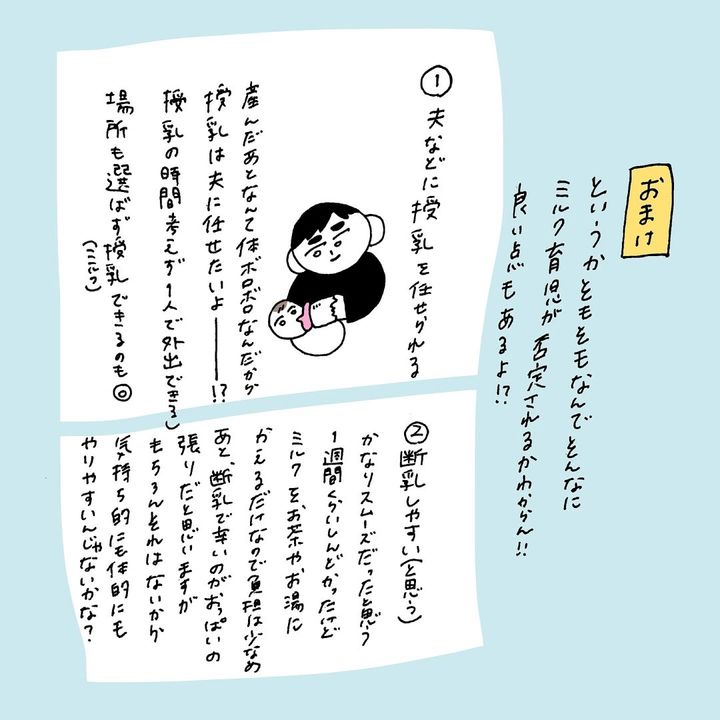 おまけ
というかともそもなんでそんなに
ミルク育児が否定されるかわからん!!
良い点もあるよ!?
① 夫などに授乳を任せられる
産んだあとなんて体ボロボロなんだから
授乳は夫に任せたいよ――!?
授乳の時間考えず1人で外出できる
場所も選ばず授乳できるのも◎
(ミルク)
② 断乳しやすい(と思う)
かなりスムーズだったと思う
1週間くらいしんどかったけど
ミルクをお茶やお湯に
かえるだけなので負担は少なめ
あと、断乳で辛いのがおっぱいの
張りだと思いますが
もちろんそれはないから
気持ち的にも体的にも
やりやすいんじゃないかな?